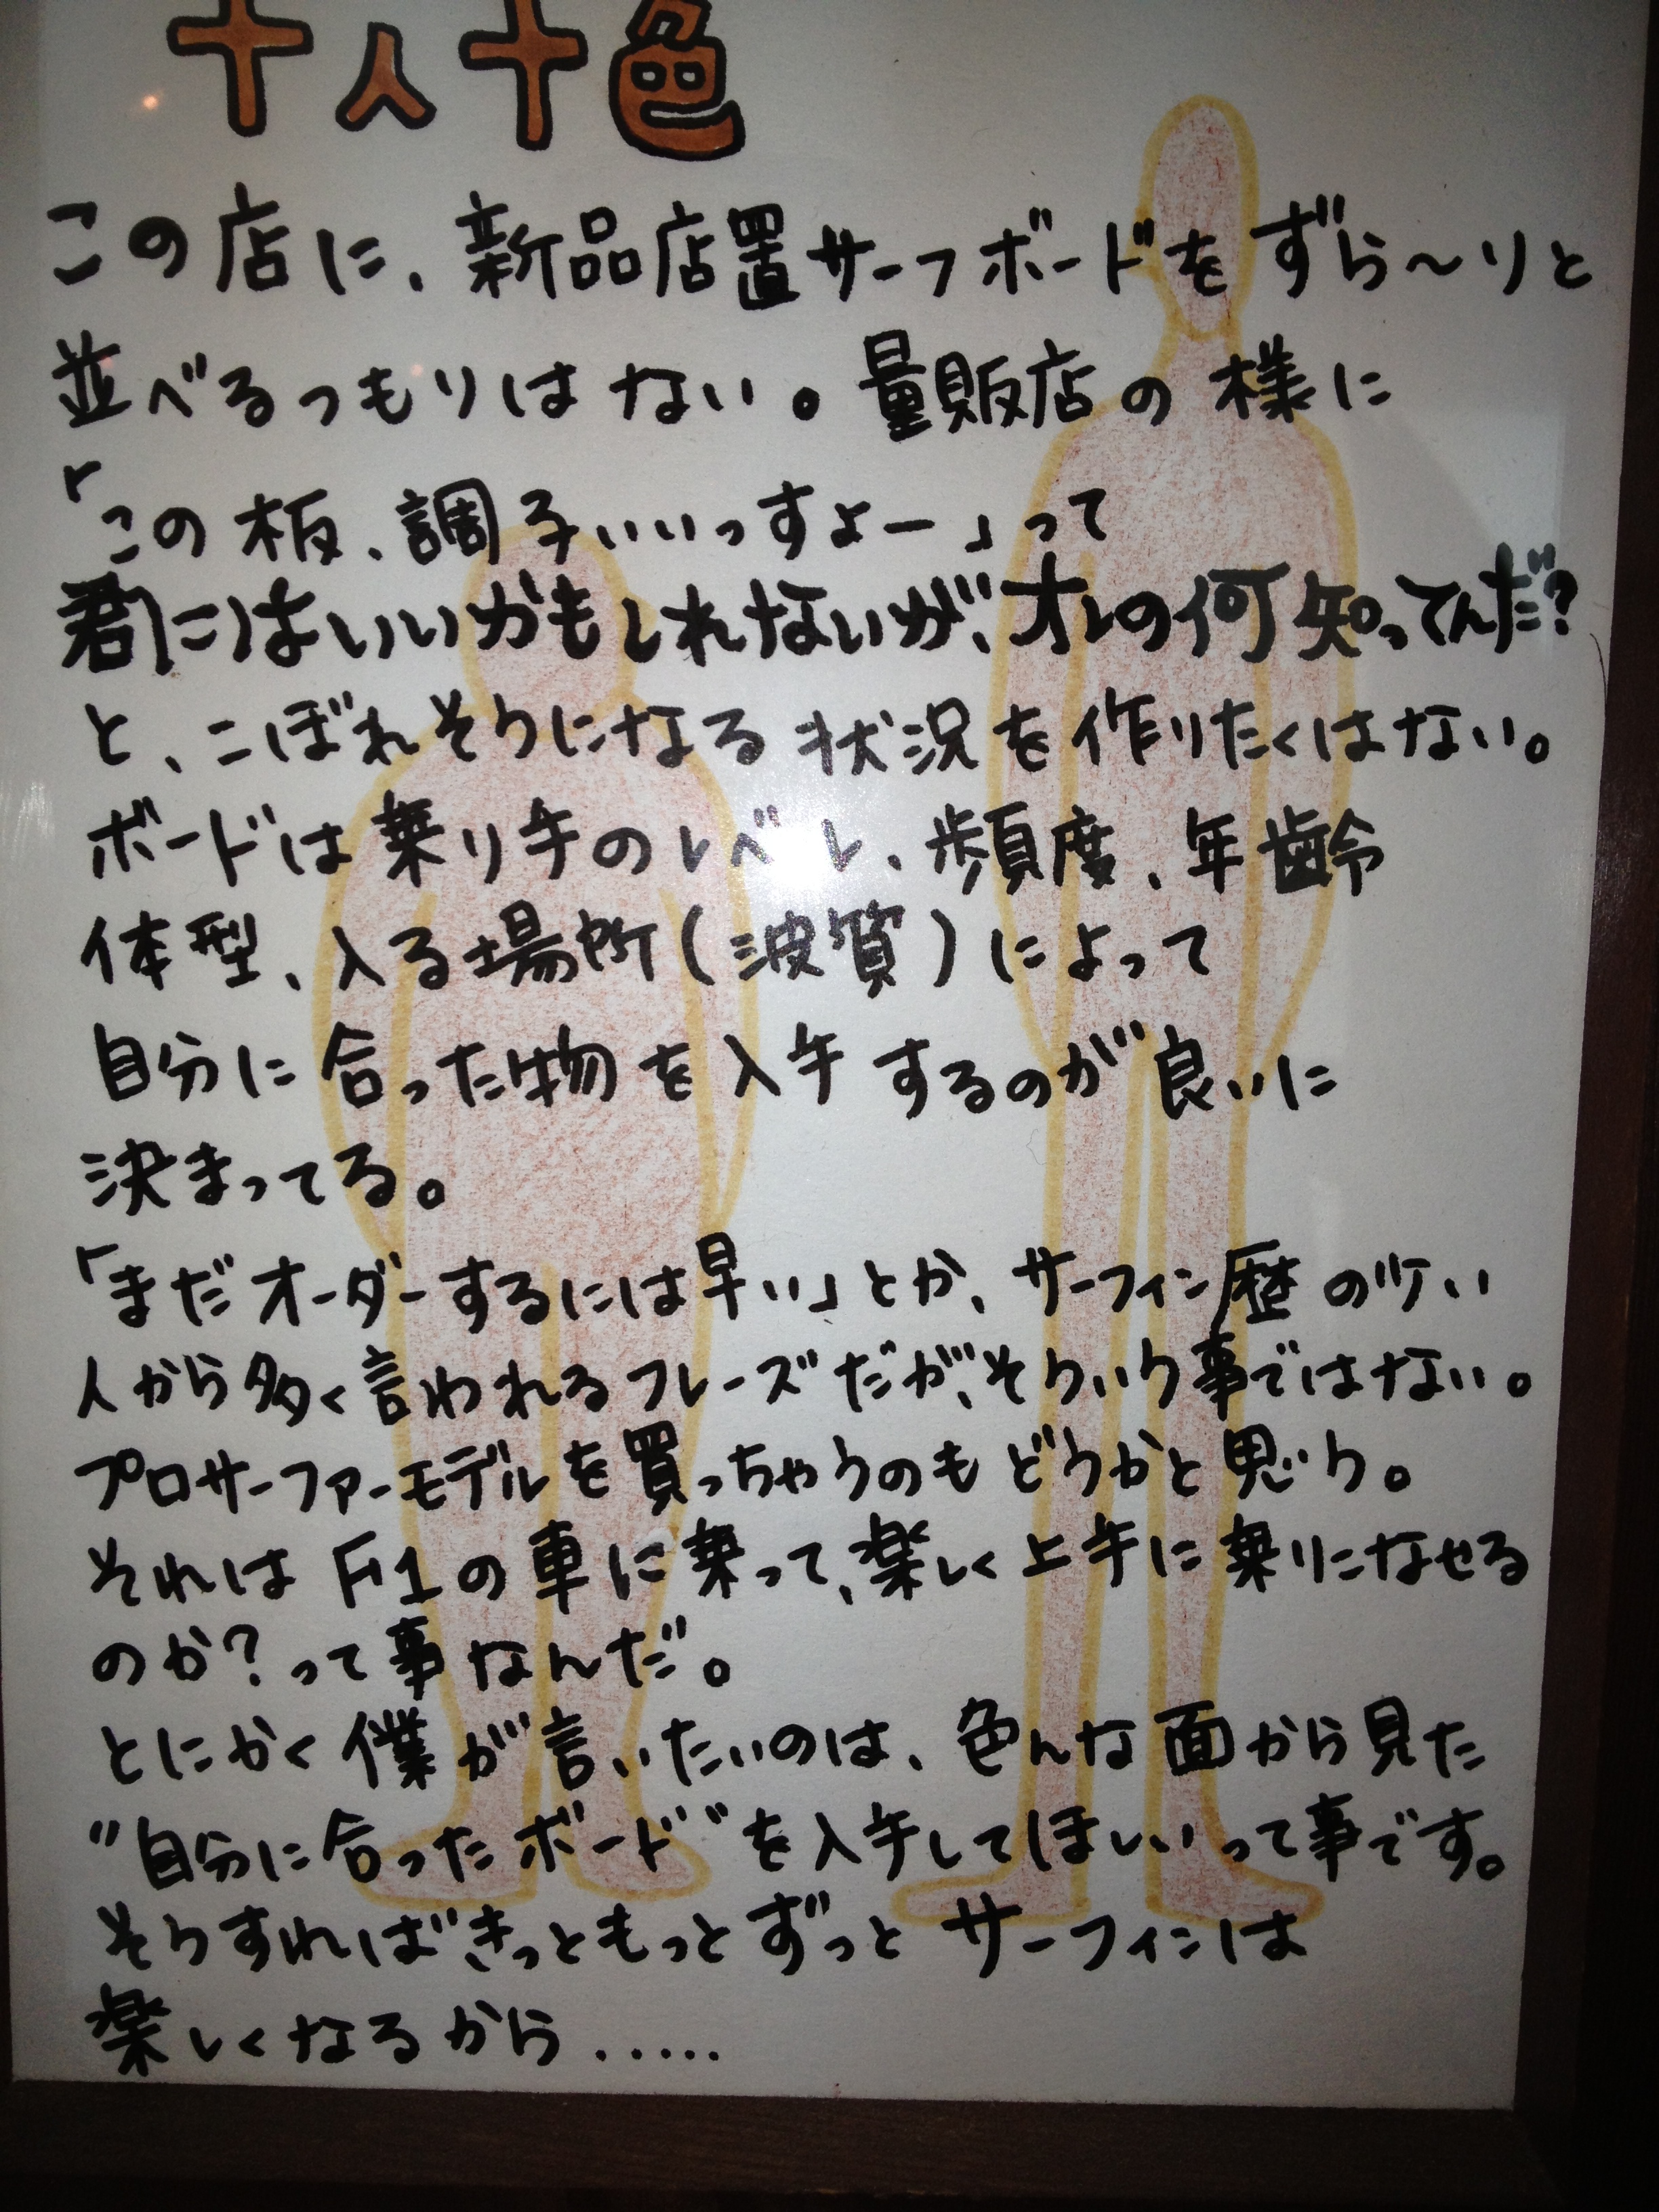 十人十色
この店に、新品店置サーフボードをずら～りと
並べるつもりはない。量販店の様に
「この板、調子いいっすよー」って
君にはいいかもしれないが、オレの何知ってんだ?
と、こぼれそうになる状況を作りたくはない。
ボードは乗り手のレベル、頻度、年齢
体型、入る場所(波質)によって
自分に合った物を入手するのが良いに
決まってる。
「まだオーダーするには早い」とか、サーフィン歴の少い
人から多く言われるフレーズだが、そういう事ではない。
プロサーファーモデルを買っちゃうのもどうかと思う。
それはF1の車に乗って、楽しく上手に乗りこなせる
のか?って事なんだ。
とにかく僕が言いたいのは、色んな面から見た
"自分に合ったボード"を入手してほしいって事です。
そうすればきっともっとずっとサーフィンは
楽しくなるから.....